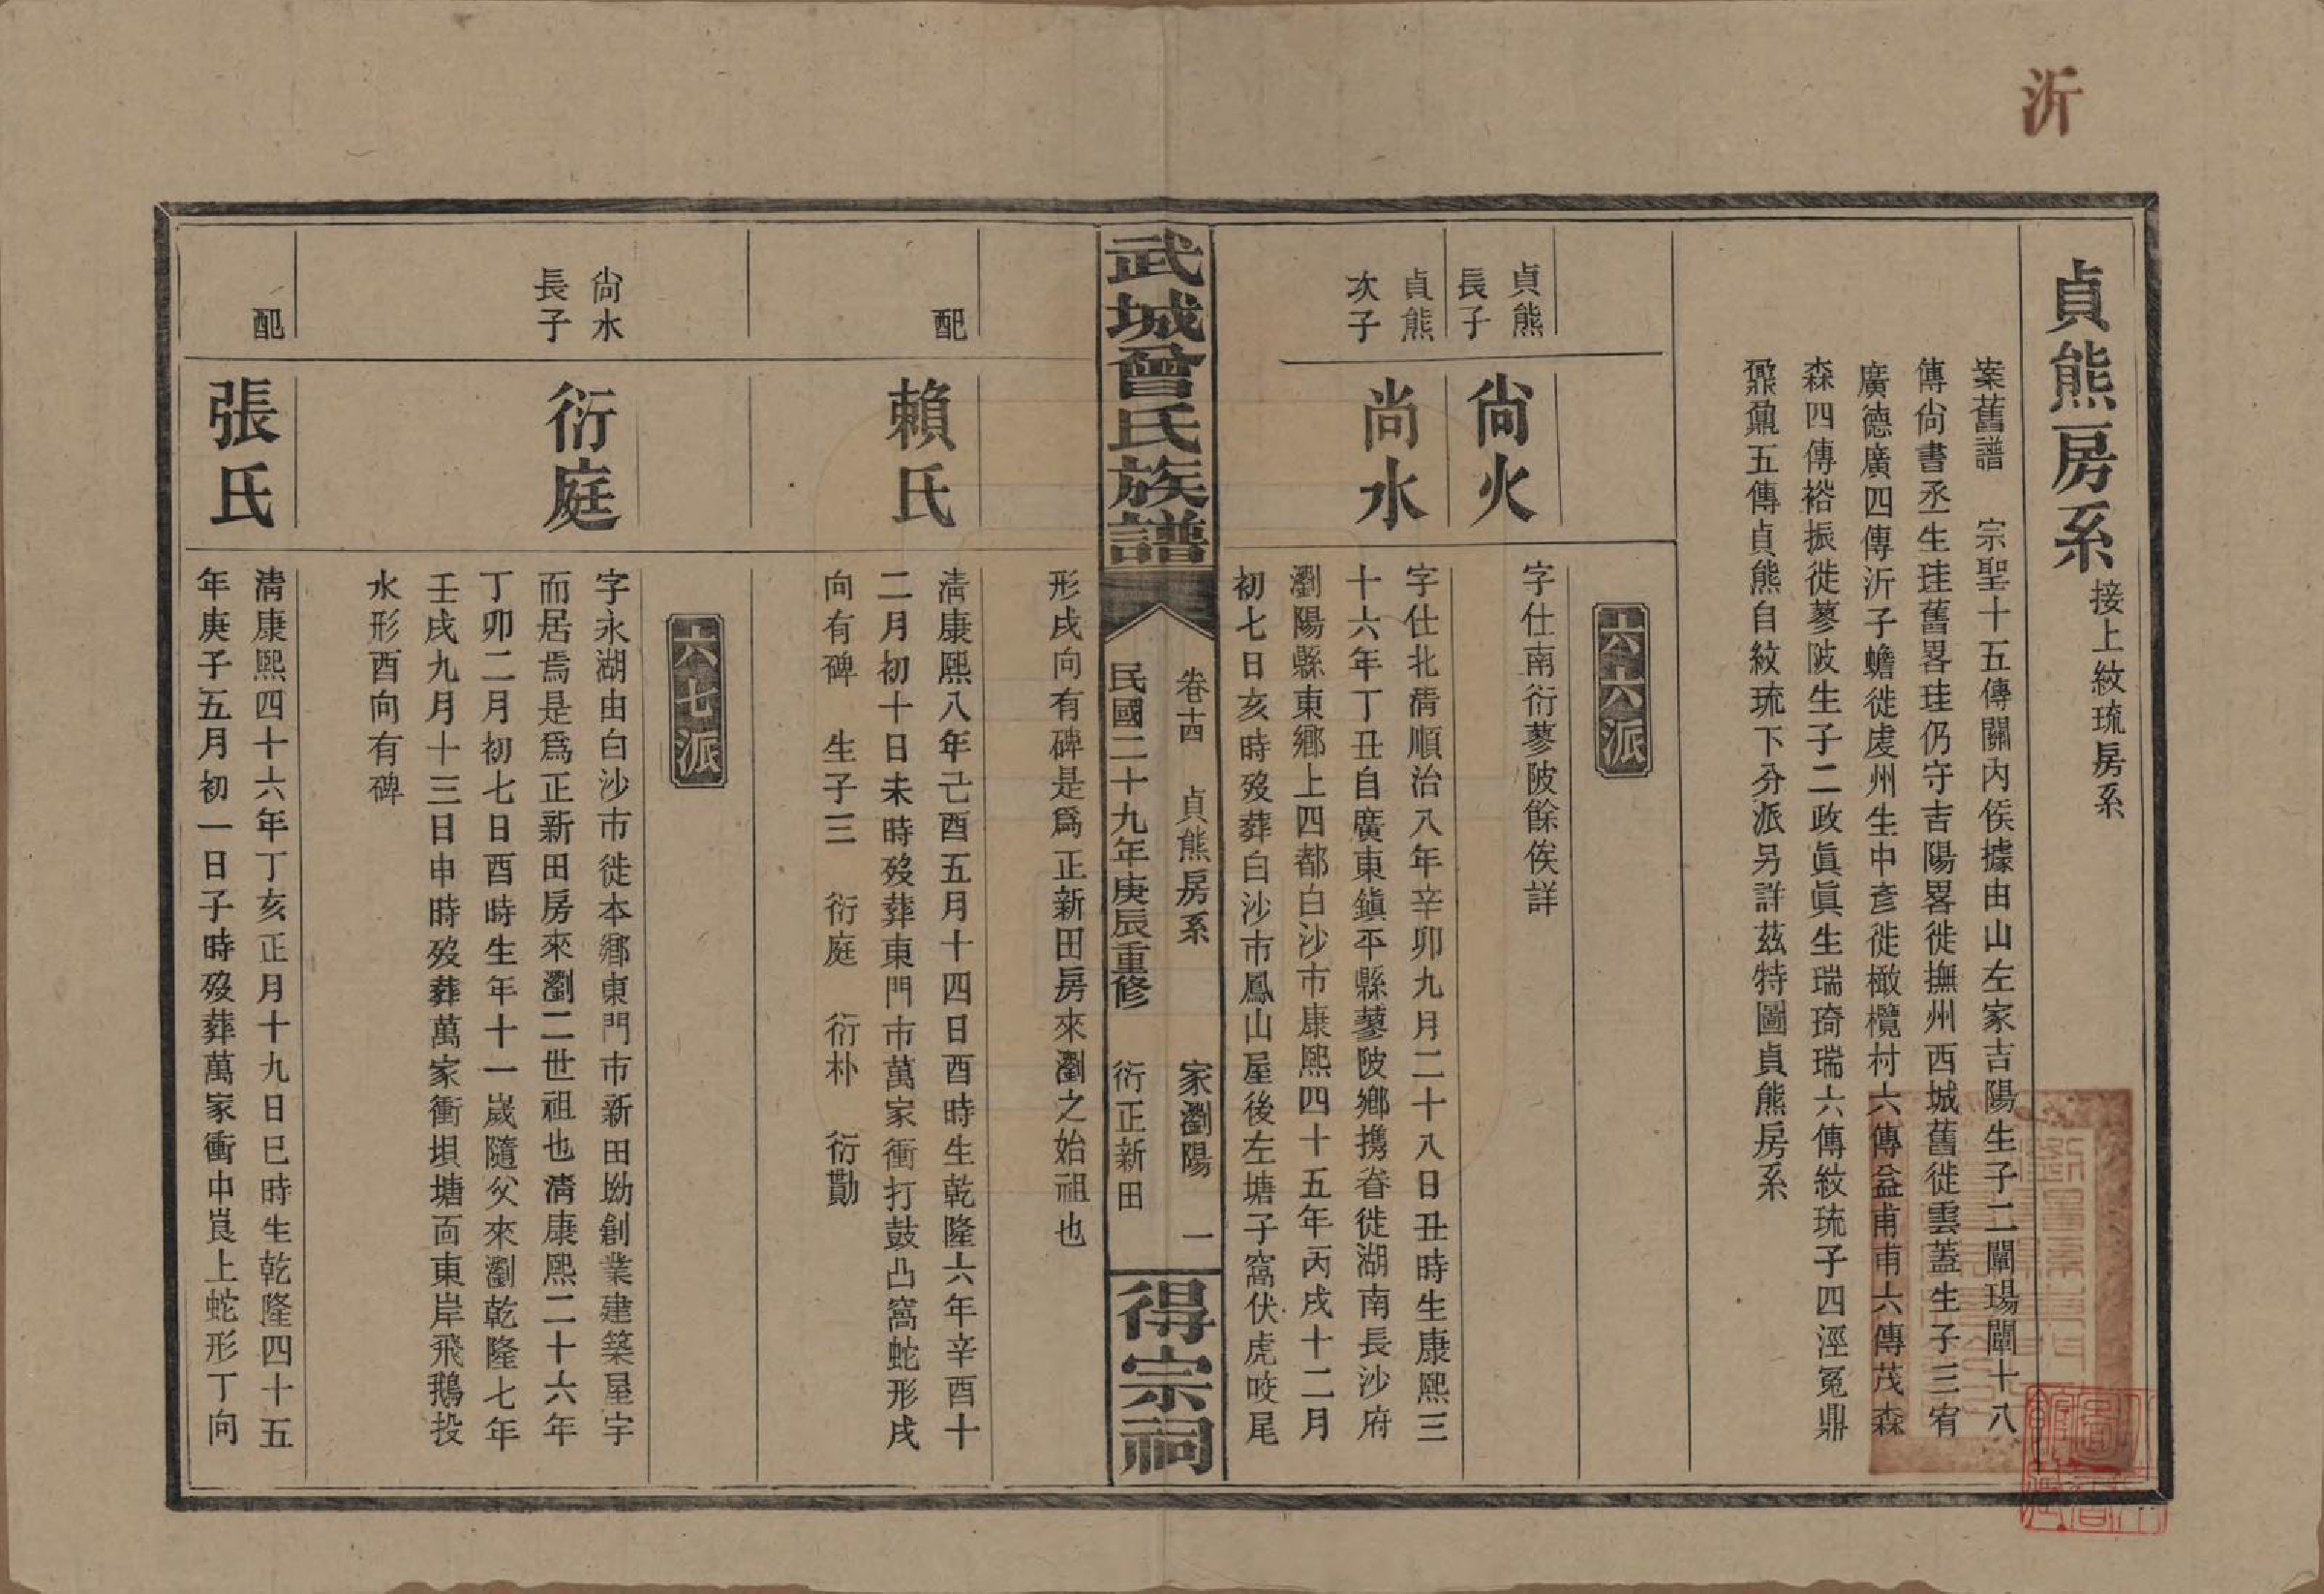 沂
貞熊房系 接上紋琉房系
案舊譜　宗聖十五傳關內侯據由山左家吉陽生子二闡瑒闡十八
傳尙書丞生珪舊畧珪仍守吉陽畧徙撫州西城舊徙雲蓋生子三宥
廣德廣四傳沂子蟾徙虔州生中彥徙橄欖村六傳益甫甫六傳茂森
森四傳裕振徙蓼陂生子二政眞眞生瑞琦瑞六傳紋琉子四涇冤鼎
鼐鼏五傳貞熊自紋琉下分派另詳茲特圖貞熊房系
六六派
貞熊
長子
尙火
字仕南衍蓼陂餘俟詳
貞熊
次子
尚水
字仕北淸順治八年辛卯九月二十八日丑時生康熙三
十六年丁丑自廣東鎭平縣蓼陂鄉携眷徙湖南長沙府
瀏陽縣東鄉上四都白沙市康熙四十五年丙戌十二月
初七日亥時歿葬白沙市鳳山屋後左塘子窩伏虎咬尾
武城曾氏族譜
卷十四　貞熊房系　家瀏陽　一
民國二十九年庚辰重修　衍正新田
得宗祠
形戌向有碑是爲正新田房來瀏之始祖也
配
賴氏
淸康熙八年己酉五月十四日酉時生乾隆六年辛酉十
二月初十日未時歿葬東門市萬家衝打鼓凸窩蛇形戌
向有碑　生子三　衍庭　衍朴　衍勷
六七派
尙水
長子
衍庭
字永湖由白沙市徙本鄉東門市新田坳創業建築屋宇
而居焉是爲正新田房來瀏二世祖也淸康熙二十六年
丁卯二月初七日酉時生年十一歲隨父來瀏乾隆七年
壬戌九月十三日申時歿葬萬家衝垻塘面東岸飛鵝投
水形酉向有碑
配
張氏
淸康熙四十六年丁亥正月十九日巳時生乾隆四十五
年庚子五月初一日子時歿葬萬家衝中崀上蛇形丁向